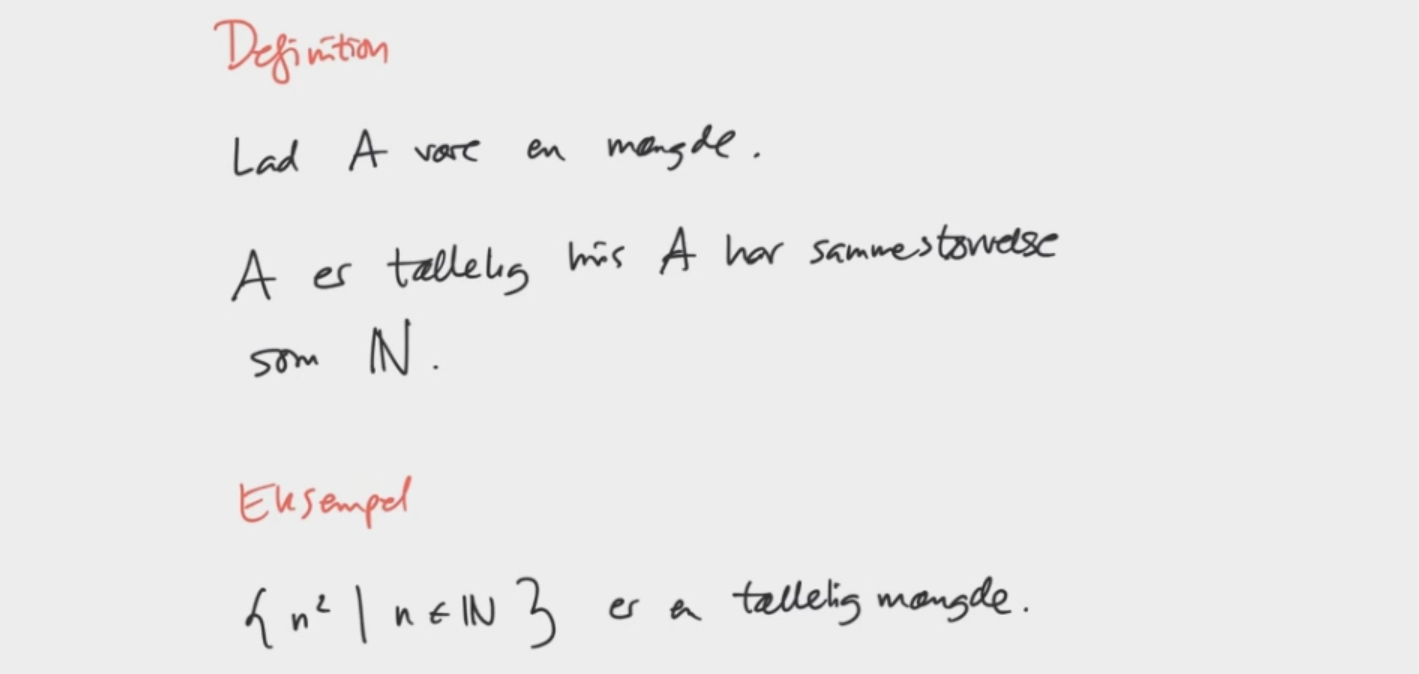 Definition
Lad A være en mængde.
A er tællelig hvis A har samme størrelse
som ℕ.
Eksempel
{ n² | n ∈ ℕ } er en tællelig mængde.